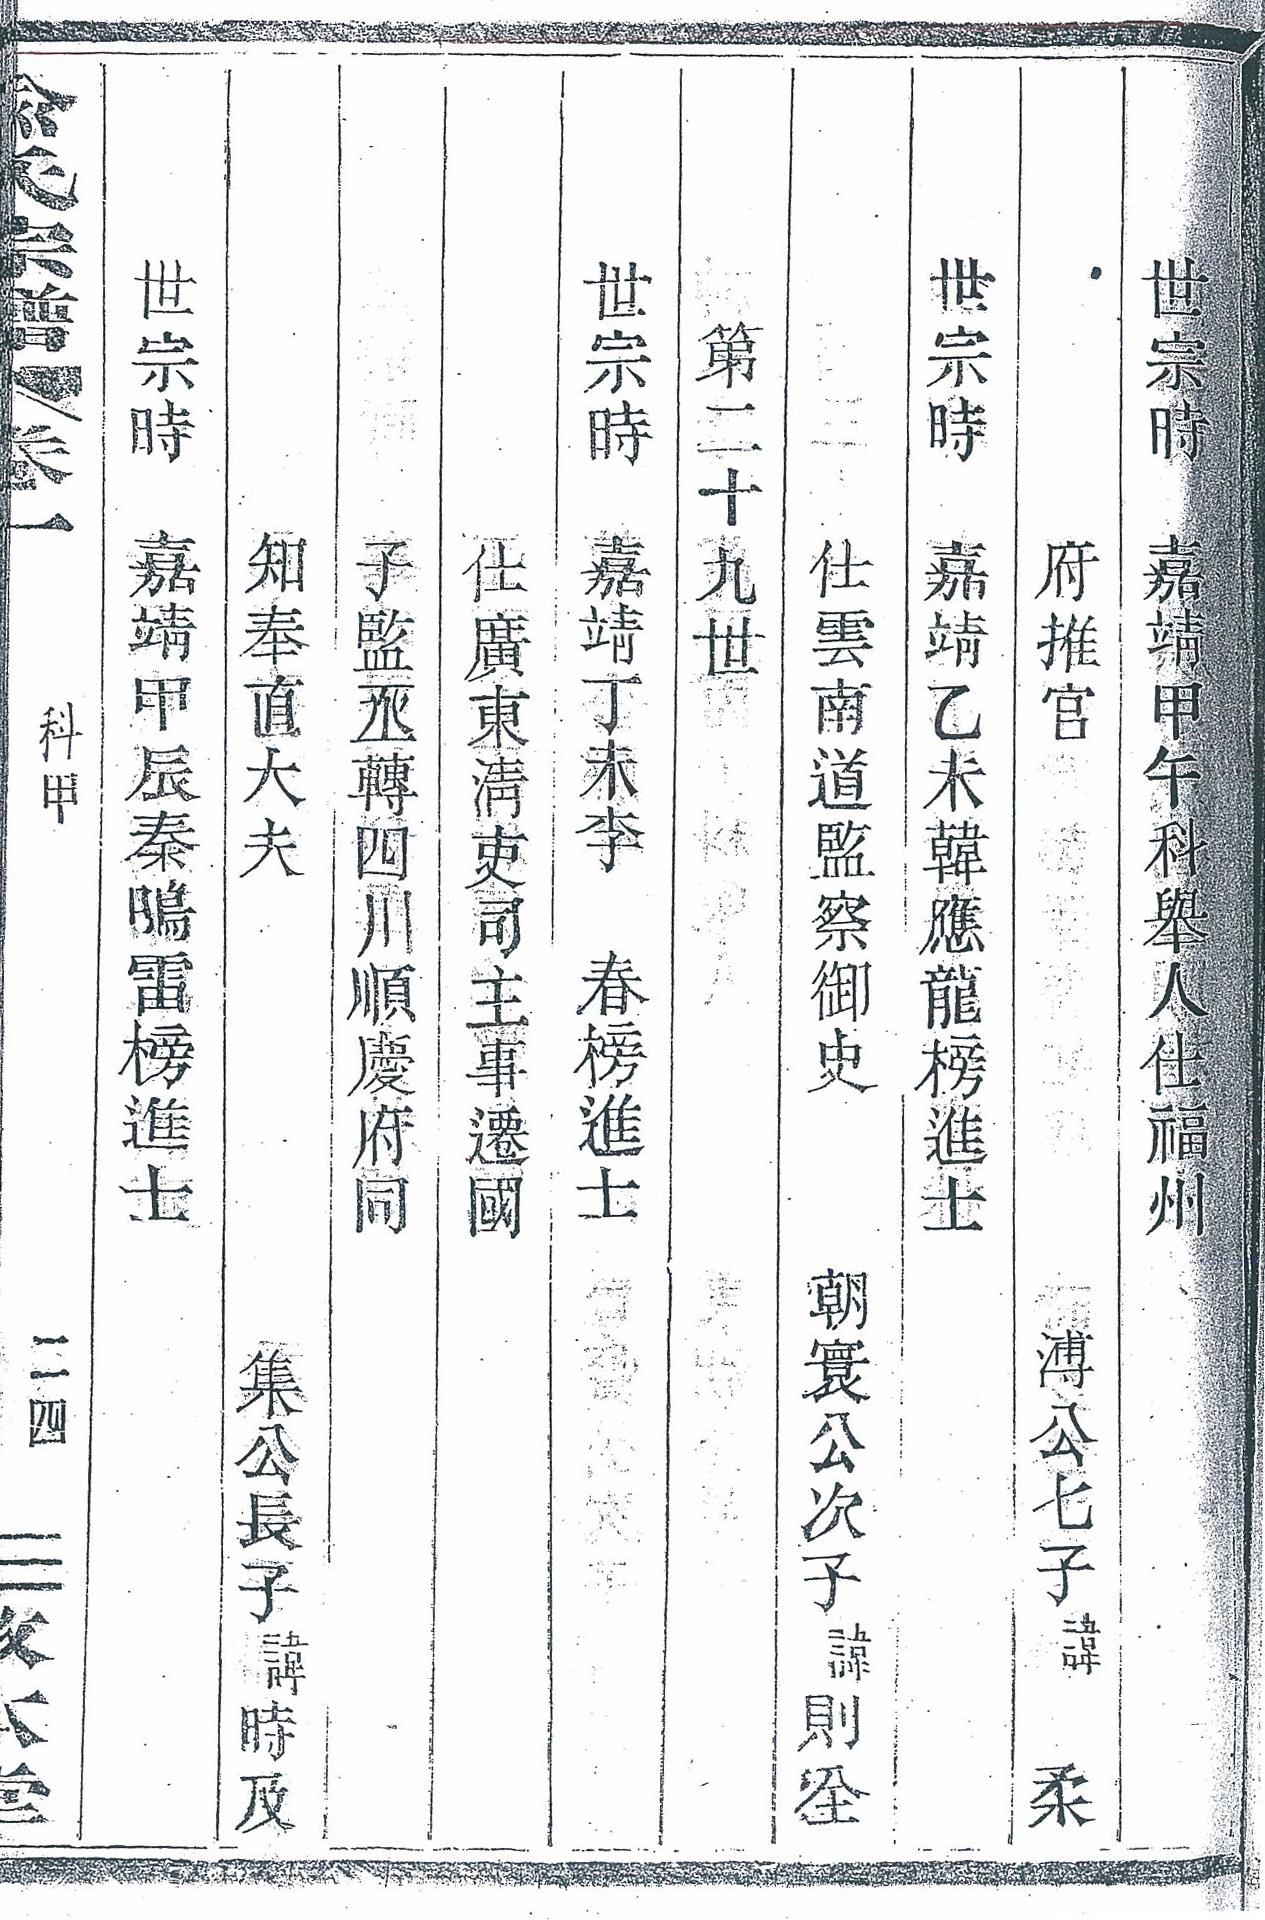 世宗時　嘉靖甲午科舉人仕福州
府推官　溥公七子諱　柔
世宗時　嘉靖乙未韓應龍榜進士
仕雲南道監察御史　朝寰公次子諱則全
第二十九世
世宗時　嘉靖丁未李　春榜進士
仕廣東清吏司主事遷國
子監丞轉四川順慶府同
知奉直大夫　集公長子諱時及
世宗時　嘉靖甲辰秦鳴雷榜進士
氏宗譜 卷一　科甲　二四　本堂